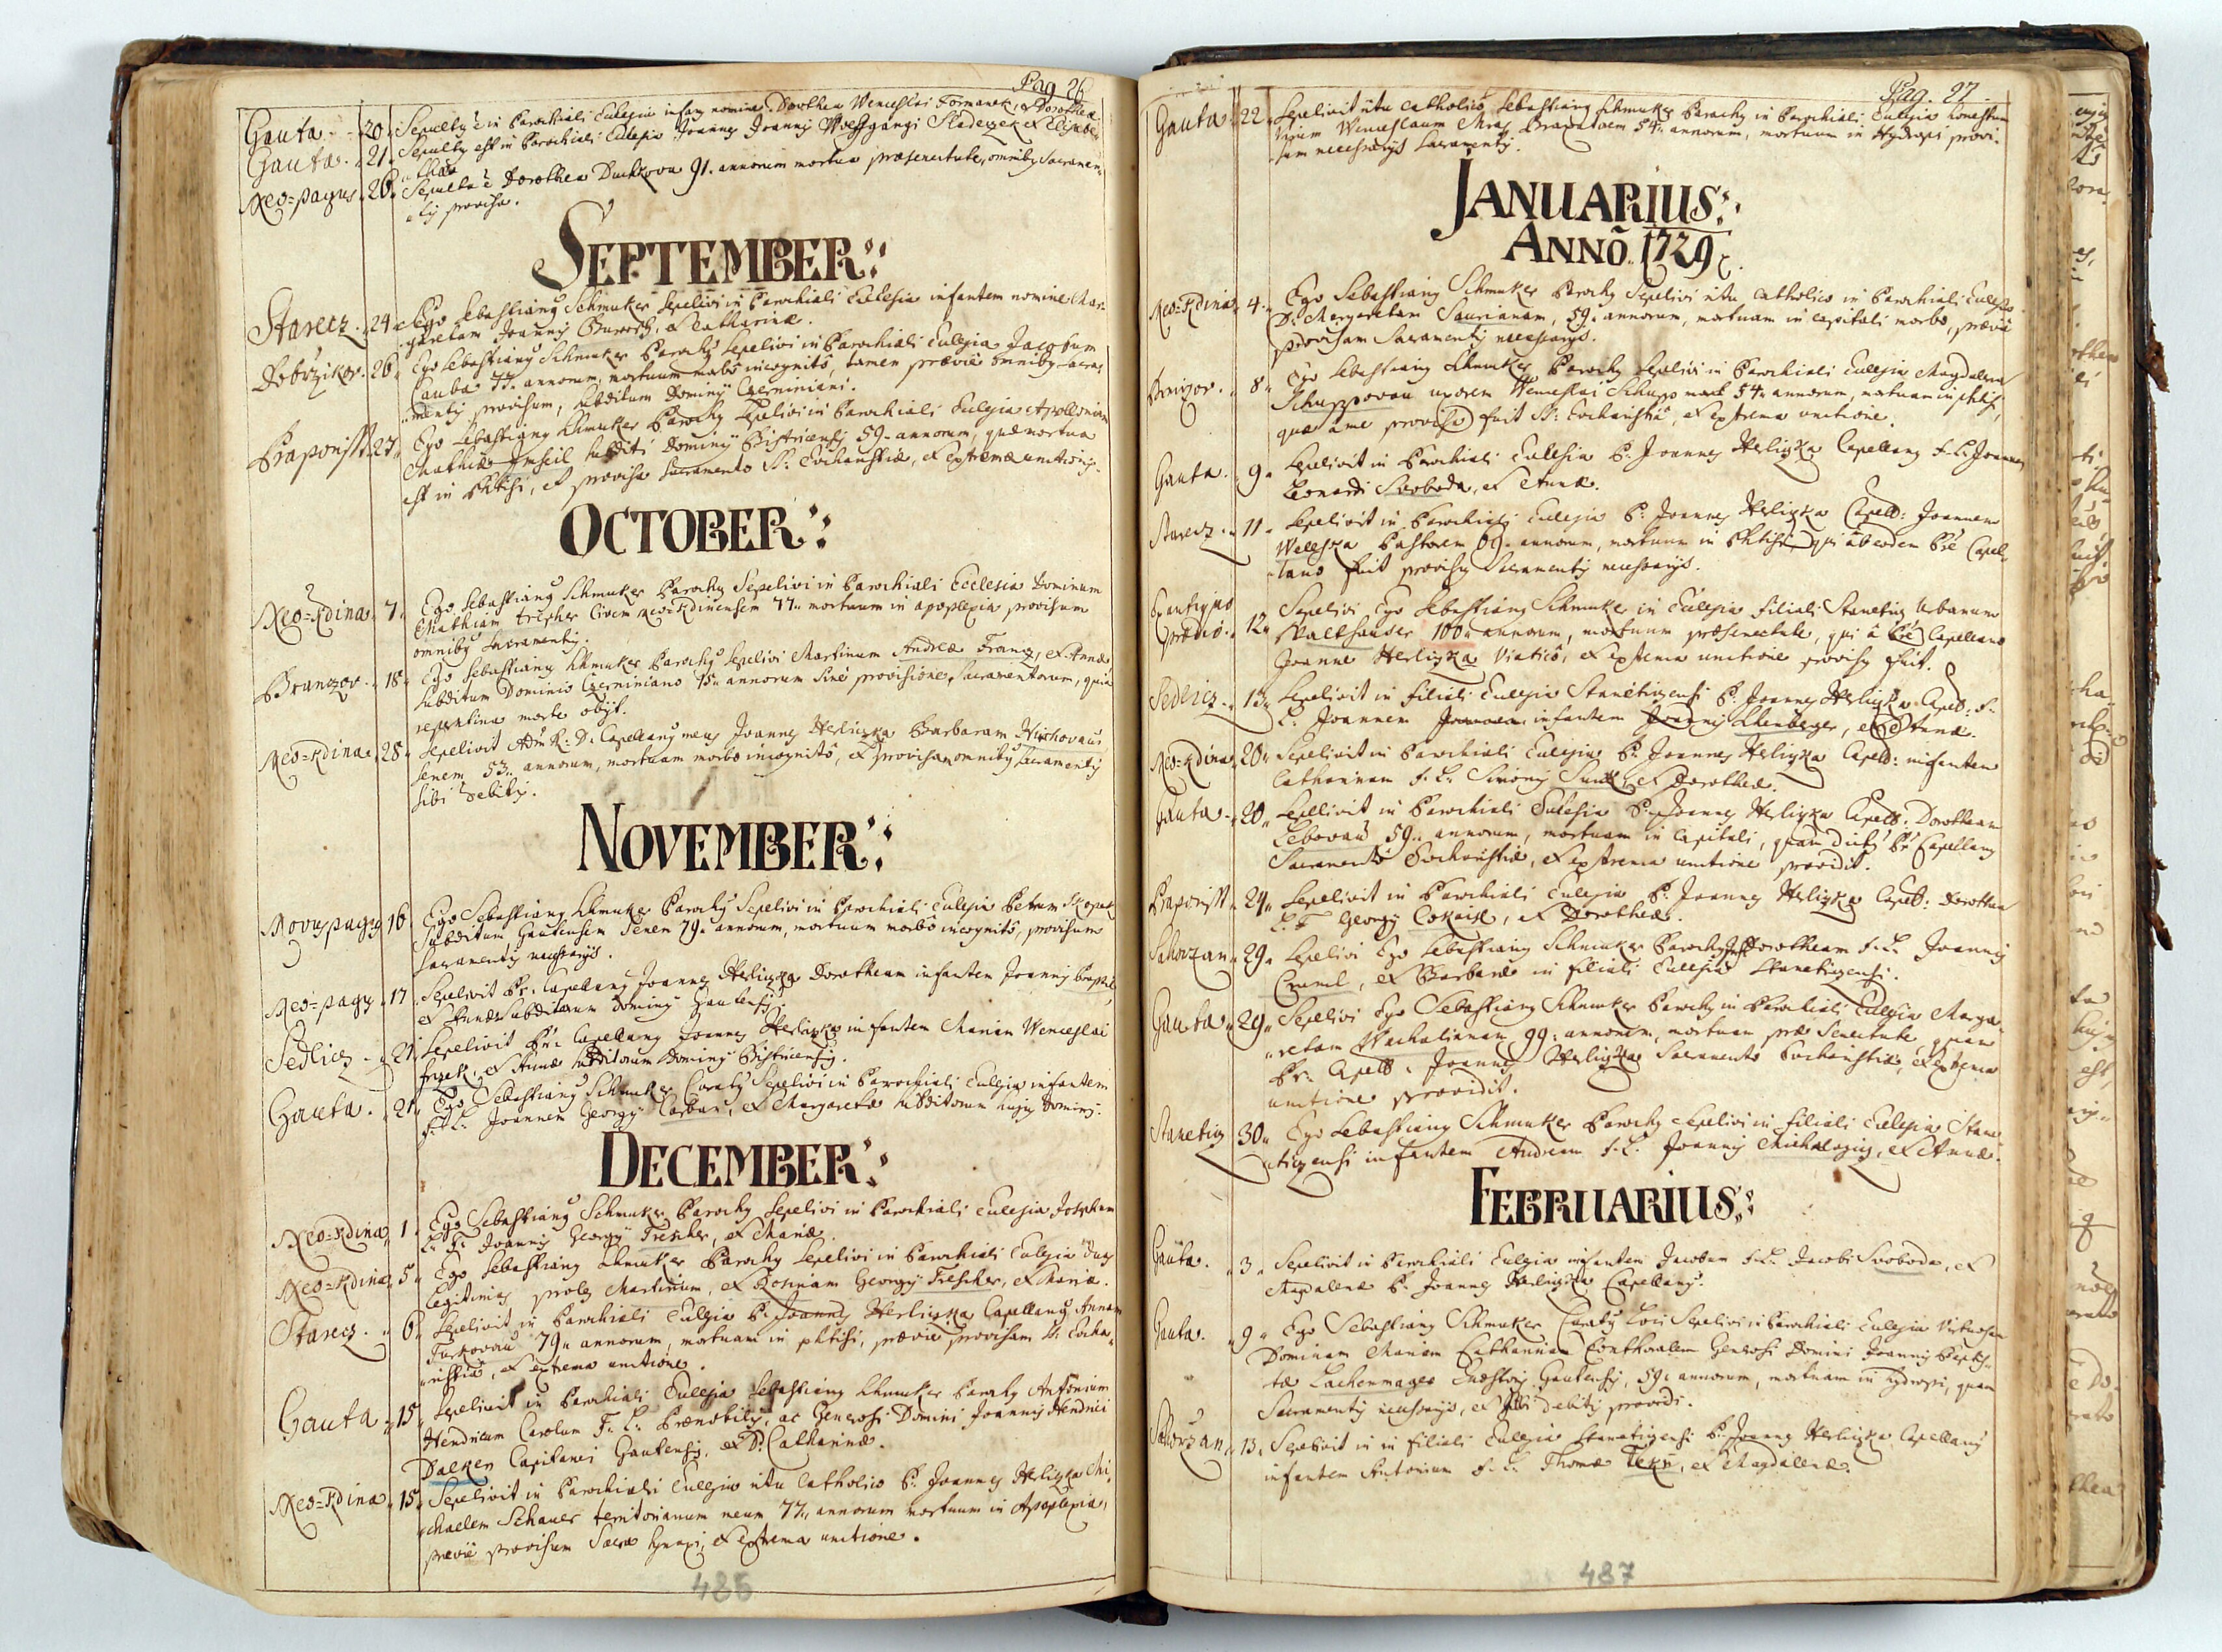 Pag. 26
Gauta. 20. Sepultus ē in Parochiali Ecclesia infans nomine Dorothea Wenceslai Formanek, et Dorothea
Gauta. 21. Sepultus est in Parochiali Ecclesia Joannes Joannis Wolfgangi Sladeczek et Elisabe-
thæ
Neo=pagus 26. Sepulta ē Dorothea Duchkova 91. annorum mortua præ senectute, omnibus Sacramen-
tis provisa.
SEPTEMBER:
Starecz. 24. Ego Sebastianus Schmuker Sepelivi in Parochiali Ecclesia infantem nomine Mar-
garetam Joannis et Catharinæ.
Dobrzikov. 26. Ego Sebastianus Schmuker Parochus Sepelivi in Parochiali Ecclesia Jacobum
Cauba 77. annorum, mortuum morbo incognitô, tamen præviè omnibus Sacra-
mentis provisum, subditum Dominii Czerniniani.
27. Ego Sebastianus Schmuker Parochus Sepelivi in Parochiali Ecclesia Apolloniam
Mathiæ subditi Dominii Bistricensis 59. annorum, quæ mortua
est in Phtisi, et provisa Sacramento SS: Eucharistiæ, et extremæ unctionis.
OCTOBER:
Neo=Kdina. 7. Ego Sebastianus Schmuker Parochus Sepelivi in Parochiali Ecclesia Dominum
Mathiam Trescher Civem Neo=Kdinensem 77. mortuum in apoplexia provisum
omnibus Sacramentis.
18. Ego Sebastianus Schmuker Parochus Sepelivi Martinum Andreæ Franz, et Annæ
Subditum Dominio Czerniniano 15. annorum Sinè provisione Sacramentorum, quia
repentina morte obijt.
Neo=Kdina. 28. Sepelivit Adm R: D: Capellanus meus Joannes Herliczka Barbaram
Senem 53. annorum, mortuam morbo incognitô, et provisam omnibus Sacramentis
sibi debitis.
NOVEMBER:
Novus pagus 16. Ego Sebastianus Schmuker Parochus Sepelivi in Parochiali Ecclesia Petrum Skopek
Subditum Gautensem Senem 79. annorum, mortuum morbô incognitô, provisum
Sacramentis necessarijs.
Neo=pagus 17. Sepelivit Pr: Capellanus Joannes Herliczka Dorotheam infantem Joannis
et Annæ Subditorum Dominii Gautensis.
Sedlicz. 21. Sepelivit Pr: Capellanus Joannes Herliczka infantem Mariam Wenceslai
et Annæ subditorum Dominii Bistricensis.
Gauta. 21. Ego Sebastianus Schmuker Curatus Sepelivi in Parochiali Ecclesia infantem
F: L: Joannem Georgij et Margaretæ subditorum hujus Dominij.
DECEMBER:
Neo=Kdina 1. Ego Sebastianus Schmuker Parochus Sepelivi in Parochiali Ecclesia Josephum
L: F: Joannis Georgij Trescher, et Mariæ.
Neo=Kdina 5. Ego Sebastianus Schmuker Parochus Sepelivi in Parochiali Ecclesia duas
legitimas proles Martinum, et Rosinam Georgij Trescher, et Mariæ.
Starecz. 6. Sepelivit in Parochiali Ecclesia P: Joannes Herliczka Capellanus Annam
79. annorum, mortuam in phtisi, præviè provisam SS: Eucha-
ristiâ, et extrema unctione.
Gauta 15. Sepelivit in Parochiali Ecclesia Sebastianus Schmuker Parochus Antonium
Hendricum Carolum F: L: Prænobilis, ac Generosi Domini Joannis Hendrici
Dalken Capitanei Gautensis, et D: Catharinæ.
Neo=Kdina. 15. Sepelivit in Parochiali Ecclesia ritu Catholico P: Joannes Herliczka Mi-
chaelem Schauer territorianum 77. annorum mortuum in Apoplexia,
præviè provisum Sacra Synaxi, et extrema unctione.
485
Pag. 27
Gauta. 22. Sepelivit ritu catholico Sebastianus Schmuker Parochus in Parochiali Ecclesia honestum
Virum Wenceslaum Mraz 54. annorum, mortuum in Hydropi provi-
sum necessarijs Sacramentis.
JANUARIUS:
ANNÕ. 1729
Neo=Kdina 4. Ego Sebastianus Schmuker Parochus Sepelivi ritu catholico in Parochiali Ecclesia
D: Margaretam Saurianam, 59. annorum, mortuam in capitali morbo, præviè
provisam Sacramentis necessarijs.
8. Ego Sebastianus Schmuker Parochus Sepelivi in Parochiali Ecclesia Magdalenam
Schuppovau uxorem Wenceslai Schupp 54. annorum, mortuam in phtisi,
quæ à me provisa fuit SS: Eucharistiâ, et extrema unctione.
Gauta. 9. Sepelivit in Parochiali Ecclesia P: Joannes Herliczka Capellanus F: L: Joannem
Leonardi Svoboda, et Annæ.
Starecz. 11. Sepelivit in Parochiali Ecclesia P: Joannes Herliczka Capell: Joannem
Weleska Pastorem 69. annorum, mortuum in Phtisi, qui ab eodem Pre Capel-
lano fuit provisus Sacramentis necessarijs.
Ex antiquo
Prædio. 12. Sepelivi Ego Sebastianus Schmuker in Ecclesia filiali Stanetiz Urbanum
Walthauser 100. annorum, mortuum præ senectute, qui à Pre Capellano
Joanne Herliczka Viaticô, et extrema unctione provisus fuit.
Sedlicz. 13. Sepelivit in filiali Ecclesia Stanetizensi P: Joannes Herliczka Capell: F:
L: Joannem infantem Joannis et Annæ.
Neo=Kdina 20. Sepelivit in Parochiali Ecclesia P: Joannes Herliczka Capell: infantem
Catharinam F: L: Simonis et Dorotheæ.
Gauta. 20. Sepelivit in Parochiali Ecclesia P: Joannes Herliczka Capell: Dorotheam
Lebovau 59. annorum, mortuam in capitali, quam dictus Pr Capellanus
Sacramentô Eucharistiæ, et extrema unctione providit.
24. Sepelivit in Parochiali Ecclesia P: Joannes Herliczka Capell: Dorotheam
L: F Georgij et Dorotheæ.
29. Sepelivi Ego Sebastianus Schmuker Parochus Dorotheam F: L: Joannis
et Barbaræ in filiali Ecclesia Stanetizensi.
Gauta 29. Sepelivi Ego Sebastianus Schmuker Parochus in Parochiali Ecclesia Marga-
retam 99. annorum, mortuam præ Senectute, quam
Pr: Capell: Joannes Herliczka Sacramento Eucharistiæ, et extrema
unctione providit.
Stanetiz 30. Ego Sebastianus Schmuker Parochus Sepelivi in filiali Ecclesia Stane-
tizensi infantem Andream F: L: Joannis et Annæ.
FEBRUARIUS:
Gauta. 3. Sepelivit in Parochiali Ecclesia infantem Jacobum F: L: Jacobi Svoboda, et
Magdalenæ P: Joannes Herliczka Capellanus.
Gauta. 9. Ego Sebastianus Schmuker Curatus Loci Sepelivi in Parochiali Ecclesia Virtuosam
Dominam Mariam Catharinam Conthoralem Generosi Domini Joannis Baptis-
tæ Lachenmayer Gautensis, 59. annorum, mortuam in hydropi, quam
Sacramentis necessarijs, et sibi debitis providi.
13. Sepelivit in in filiali Ecclesia Stanetizensi P: Joannes Herliczka Capellanus
infantem Antonium F: L: Thomæ et Magdalenæ.
487